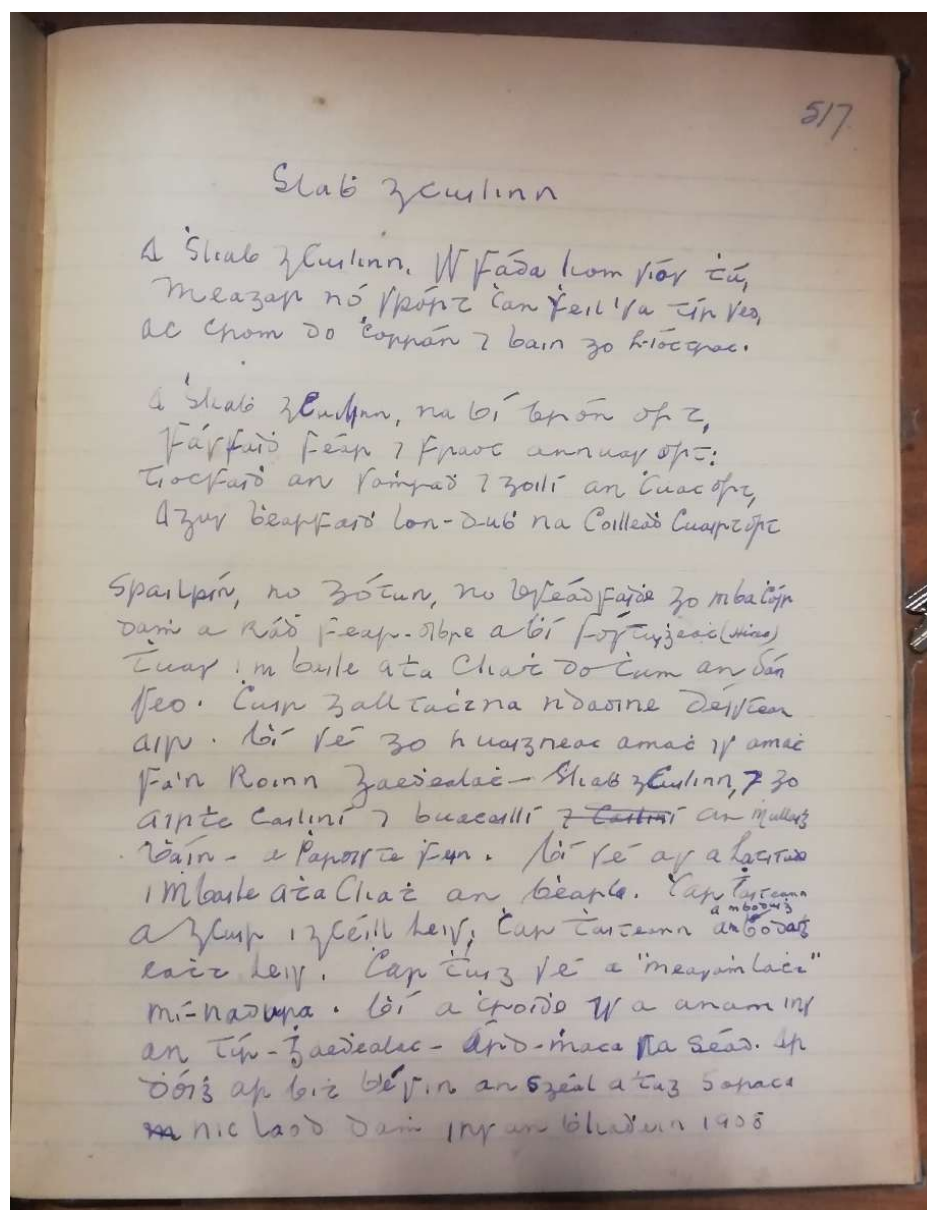 517
Sliaḃ gCuilinn
A Ṡliaḃ gCuilinn, is fada liom síos tú,
Meagar nó spórt ċan ḟeil 'sa tír seo,
ac crom do ċorrán ⁊ bain go h-íoċtraċ.
A Ṡliaḃ gCuilinn, na bí brón ort,
Fásfaiḋ féar ⁊ fraoċ annuas ort:
Tiocfaiḋ an samraḋ ⁊ goilfí an ċuaċ ort,
Agus ḃéarfaiḋ lon-duḃ na Coilleaḋ Cuairt ort
Spailpín, no gótun, no ḃféadfaiḋe go mba ċóir
daṁ a ráḋ fear-oibre a ḃí fostuiġeaċ (Hired)
ṫuas i mbaile aṫa Chaṫ do ċum an dán
seo. Ċuir galltaċt na ndaoine déistean
air. Ḃí sé go huaigneaċ amaċ is amaċ
fá'n Roinn Ġaeḋealaċ - Sliaḃ gCuilinn, ⁊ go
airiṫe Cailíní ⁊ buaċaillí an Mullaiġ
Ḃáin - a ṗaróiste féin. Ḃí sé ag a
i mbaile aṫa Chaṫ an Béarla. Ċar ṫaiteann
a gcuir i gcéill leis, Ċar ṫaiteann a mbodaiġ
eaċt leis. Ċar ṫuig sé a "measaṁlaċt"
mí-nadurṫa. Ḃí a ċroiḋe is a anam ins
an tír-Ġaeḋealaċ - Árd-Ṁaċa na Séad. Ar
ḋóiġ ar biṫ ḃé sin an sgéal a ṫug Soraċa
nic Laoḋ daṁ ins an ḃliaḋain 1908